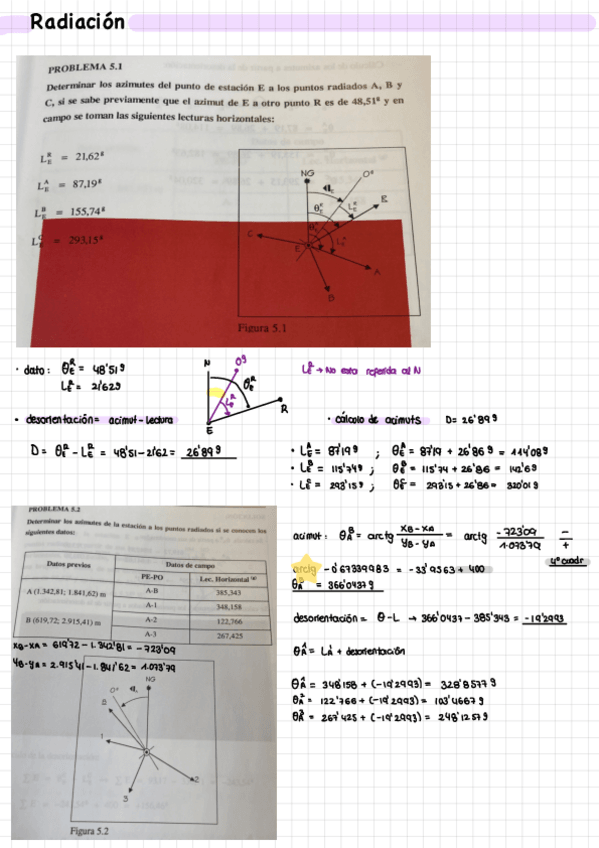 Radiación
PROBLEMA 5.1
Determinar los azimutes del punto de estación E a los puntos radiados A, B y
C, si se sabe previamente que el azimut de E a otro punto R es de 48,51ᵍ y en
campo se toman las siguientes lecturas horizontales:
L_E^R = 21,62ᵍ
L_E^A = 87,19ᵍ
L_E^B = 155,74ᵍ
L_E^C = 293,15ᵍ
NG
0ᵍ
R
C
E
A
B
Figura 5.1
· dato: θ_E^R = 48'51ᵍ
L_E^R = 21'62ᵍ
N
0ᵍ
θ_E^R
L_E^R
R
E
L_E^R → No esta referida al N
· desorientación = acimut - lectura
D = θ_E^R - L_E^R = 48'51 - 21'62 = 26'89ᵍ
· cálculo de acimuts D = 26'89ᵍ
· L_E^A = 87'19ᵍ ; θ_E^A = 87'19 + 26'86ᵍ = 114'08ᵍ
· L_E^B = 115'74ᵍ ; θ_E^B = 115'74 + 26'86 = 142'6ᵍ
· L_E^C = 293'15ᵍ ; θ_E^C = 293'15 + 26'86 = 320'01ᵍ
PROBLEMA 5.2
Determinar los azimutes de la estación a los puntos radiados si se conocen los
siguientes datos:
Datos previos Datos de campo
PE-PO Lec. Horizontal ⁽ᵍ⁾
A (1.342,81; 1.841,62) m A-B 385,343
A-1 348,158
B (619,72; 2.915,41) m A-2 122,766
A-3 267,425
XB-XA = 619'72 - 1.342'81 = -723'09
YB-YA = 2.915'41 - 1.841'62 = 1.073'79
NG
0ᵍ
B
1
2
3
Figura 5.2
acimut: θ_A^B = arctg (XB-XA)/(YB-YA) = arctg (-723'09)/(1.073'79) -/+
4º cuadr
arctg -0'67339983 = -33'9563 + 400
θ_A^B = 366'0437ᵍ
desorientación = θ - L → 366'0437 - 385'343 = -19'2993
θ_A^1 = L_A^1 + desorientación
θ_A^1 = 348'158 + (-19'2993) = 328'8577ᵍ
θ_A^2 = 122'766 + (-19'2993) = 103'4667ᵍ
θ_A^3 = 267'425 + (-19'2993) = 248'1257ᵍ